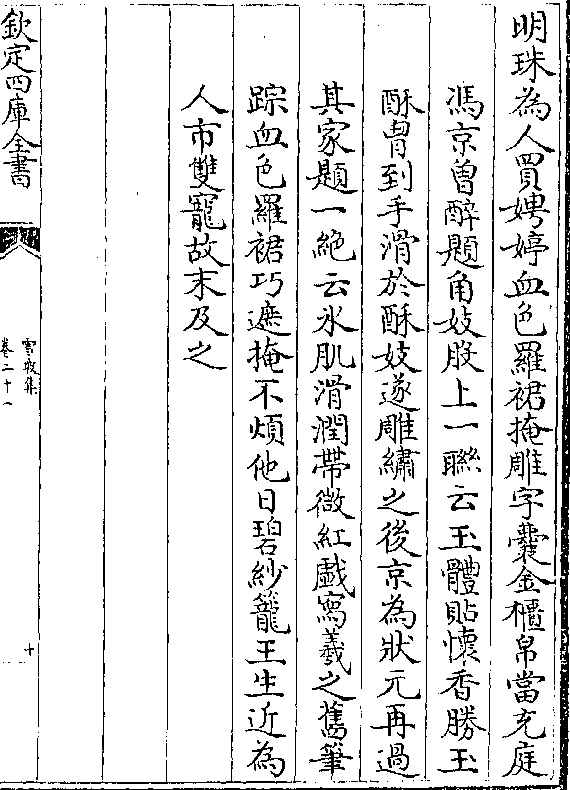 明珠為人買娉婷血色羅裙掩雕字囊金櫃帛當充庭
馮京曽醉題角妓股上一聯云玉體貼懷香勝玉
酥胷到手滑於酥妓遂雕繡之後京為狀元再過
其家題一絶云氷肌滑潤帶微紅戲寫羲之舊筆
踪血色羅裙巧遮掩不煩他日碧紗籠王生近為
人市雙寵故末及之
欽定四庫全書
雪磯集
卷二十一
十